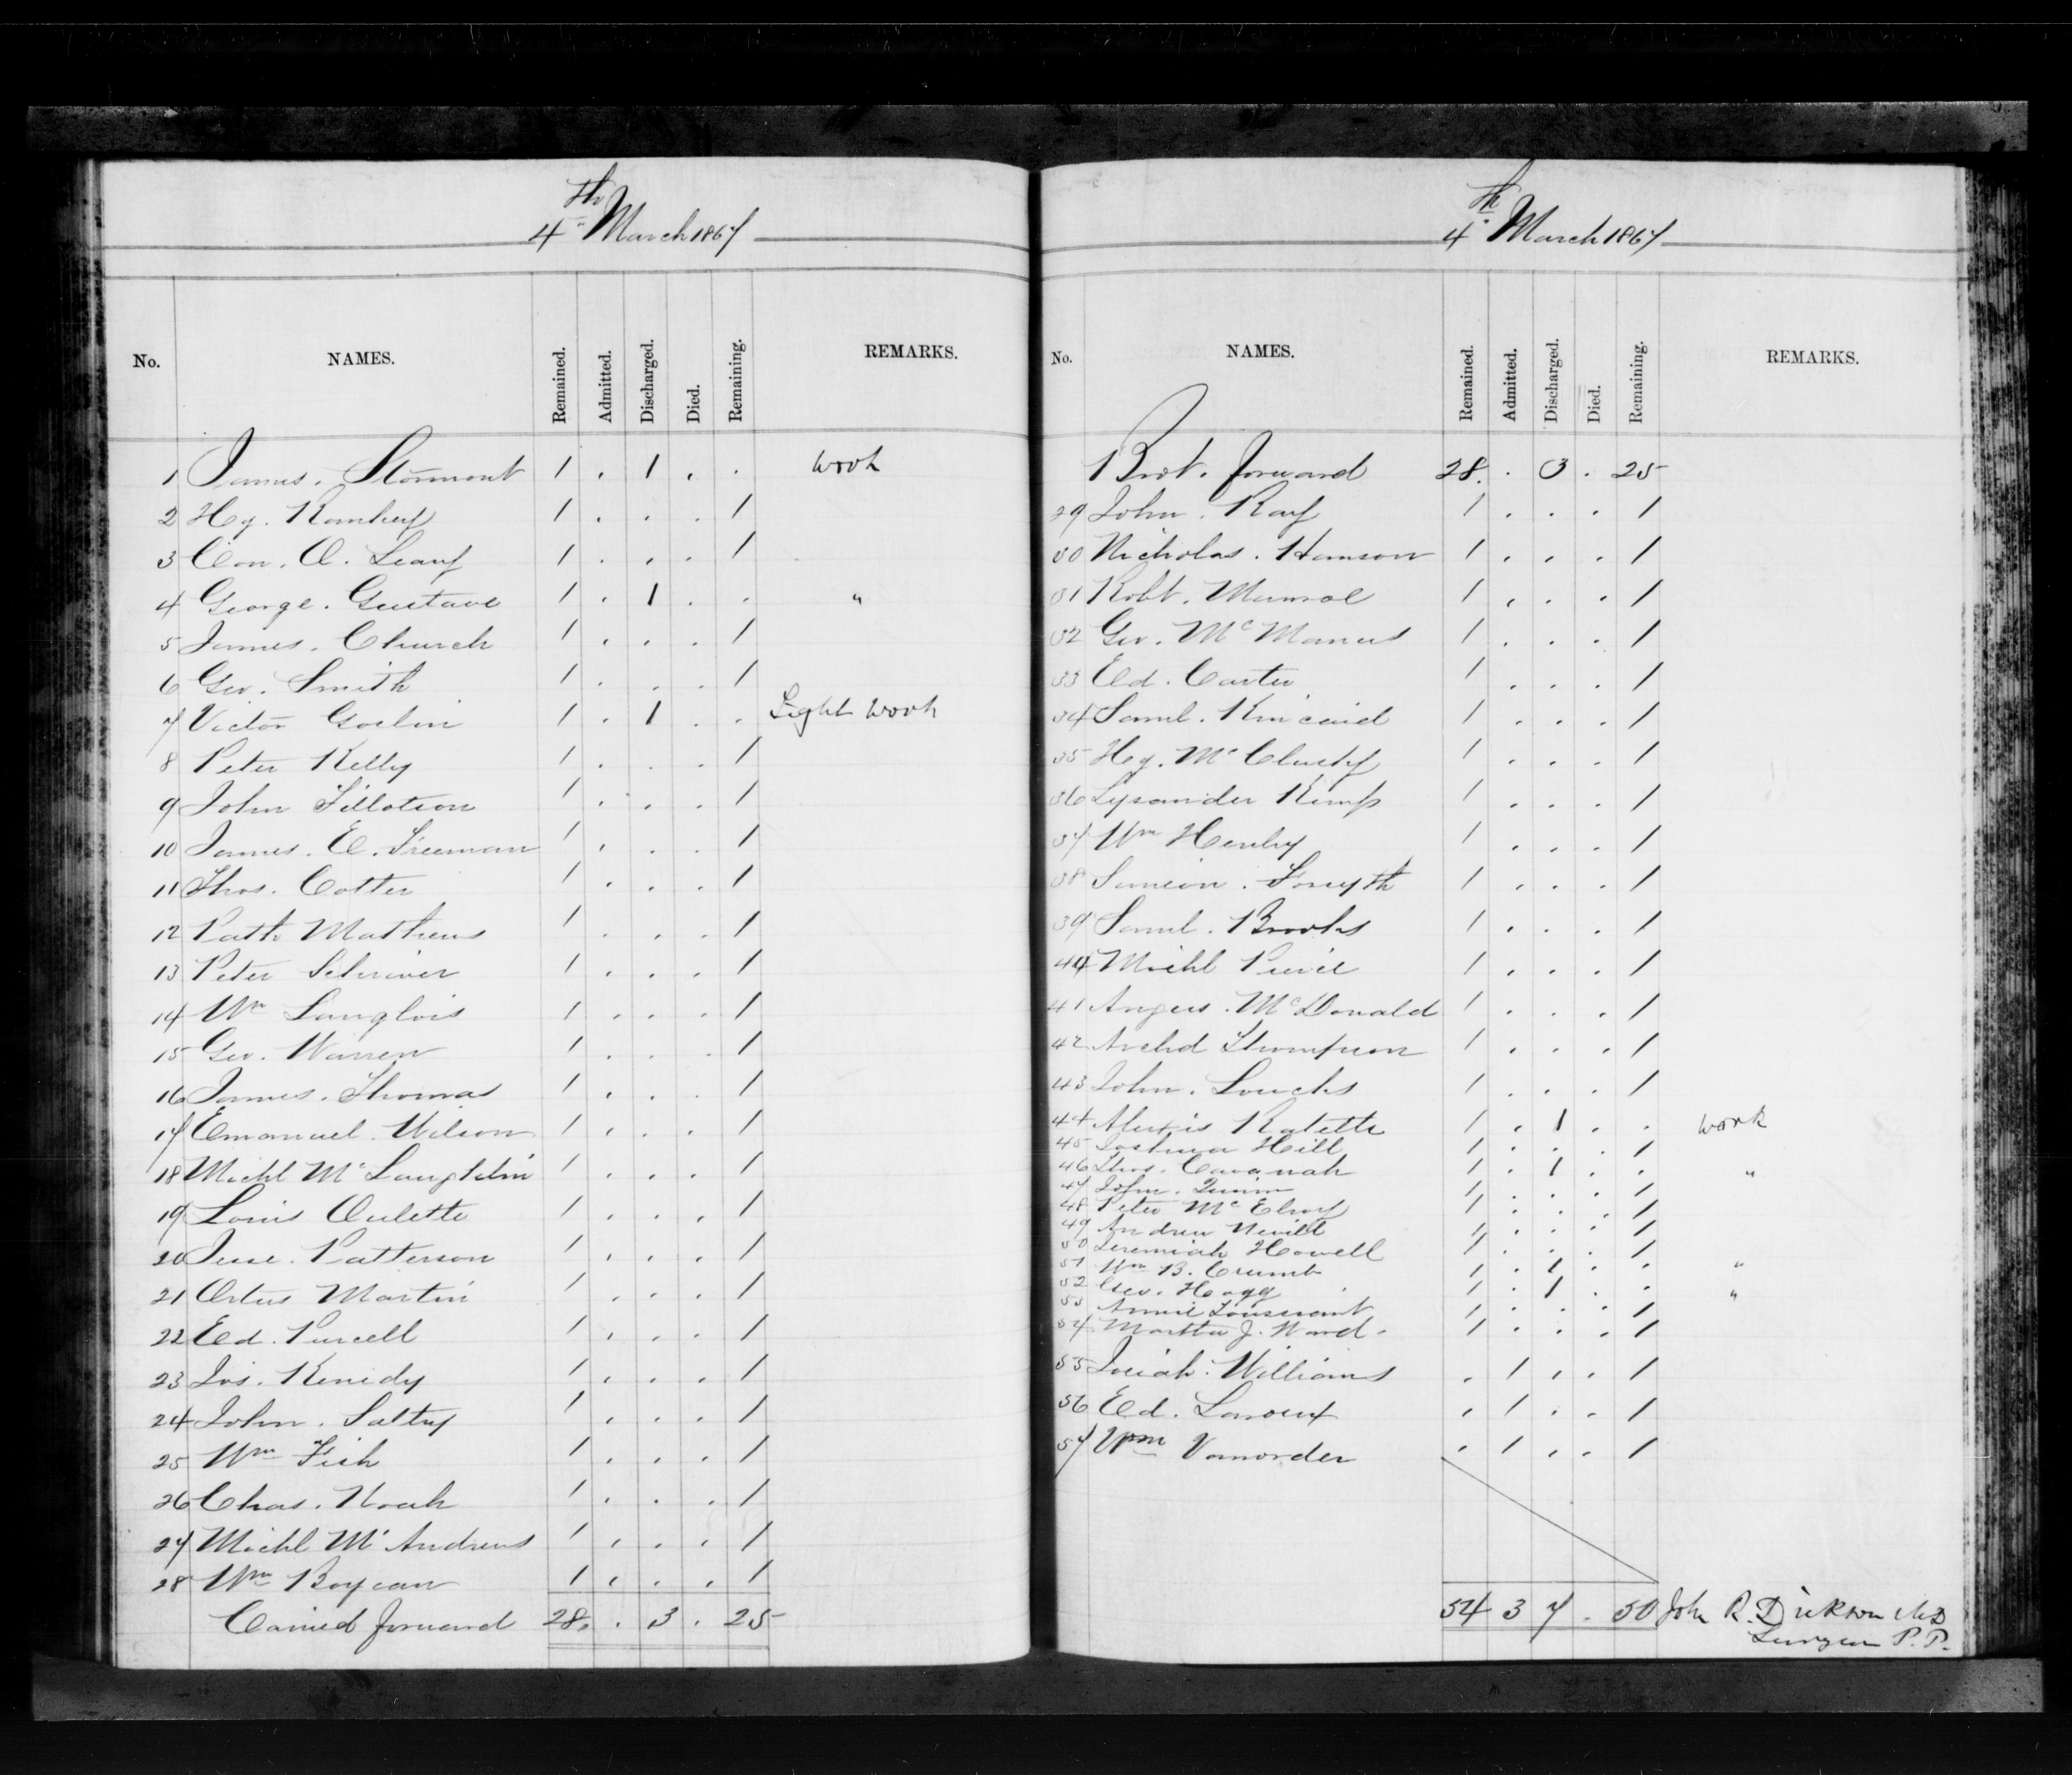 4th March 1867
No. NAMES. Remained. Admitted. Discharged. Died. Remaining. REMARKS.
1 James. Stormont 1 . 1 . . work
2 Hy. 1 . . . 1
3 Con. O. Leary 1 . . . 1
4 George. Gustave 1 . 1 . . "
5 James. Church 1 . . . 1
6 Geo. Smith 1 . . . 1
7 Victor Goslin 1 . 1 . . Light work
8 Peter Kelly 1 . . . 1
9 John Tillotson 1 . . . 1
10 James. E. Freeman 1 . . . 1
11 Thos. Cotter 1 . . . 1
12 Patk Mathews 1 . . . 1
13 Peter Schriver 1 . . . 1
14 Wm Langlois 1 . . . 1
15 Geo. Warren 1 . . . 1
16 James. Thomas 1 . . . 1
17 Emanuel. Wilson 1 . . . 1
18 Michl McLaughlin 1 . . . 1
19 Louis Oulette 1 . . . 1
20 Jesse. Patterson 1 . . . 1
21 Martin 1 . . . 1
22 Ed. Purcell 1 . . . 1
23 Jos. Kenidy 1 . . . 1
24 John. Saltry 1 . . . 1
25 Wm Fish 1 . . . 1
26 Chas. Noah 1 . . . 1
27 Michl McAndrews 1 . . . 1
28 Wm 1 . . . 1
Carried forward 28. . 3 . 25
4th March 1867
No. NAMES. Remained. Admitted. Discharged. Died. Remaining. REMARKS.
Brot. forward 28. . 3 . 25
29 John. Ray 1 . . . 1
30 Nicholas. 1 . . . 1
31 Robt. Munroe 1 . . . 1
32 Geo. McManus 1 . . . 1
33 Ed. Carter 1 . . . 1
34 Saml. Kincaid 1 . . . 1
35 Hy. McClusky 1 . . . 1
36 Lysander Kemp 1 . . . 1
37 Wm Henly 1 . . . 1
38 Simeon. Forsyth 1 . . . 1
39 Saml. Brooks 1 . . . 1
40 Michl 1 . . . 1
41 Angus. McDonald 1 . . . 1
42 Archd Thompson 1 . . . 1
43 John. Loucks 1 . . . 1
44 Alexis Ratette 1 . 1 . . work
45 Joshua Hill 1 . . . 1
46 Thos. Cavanah 1 . 1 . . "
47 John. Quinn 1 . . . 1
48 Peter McElroy 1 . . . 1
49 Andrew Nevill 1 . . . 1
50 Jeremiah Howell 1 . . . 1
51 Wm B. Crumb 1 . 1 . . "
52 Geo. Hogg 1 . 1 . . "
53 Annie Toussaint 1 . . . 1
54 Martha J. Ward. 1 . . . 1
55 Josiah. Williams . 1 . . 1
56 Ed. . 1 . . 1
57 Wm Vanorder . 1 . . 1
54 3 7 . 50 John R. Dickson MD
Surgeon P.P.